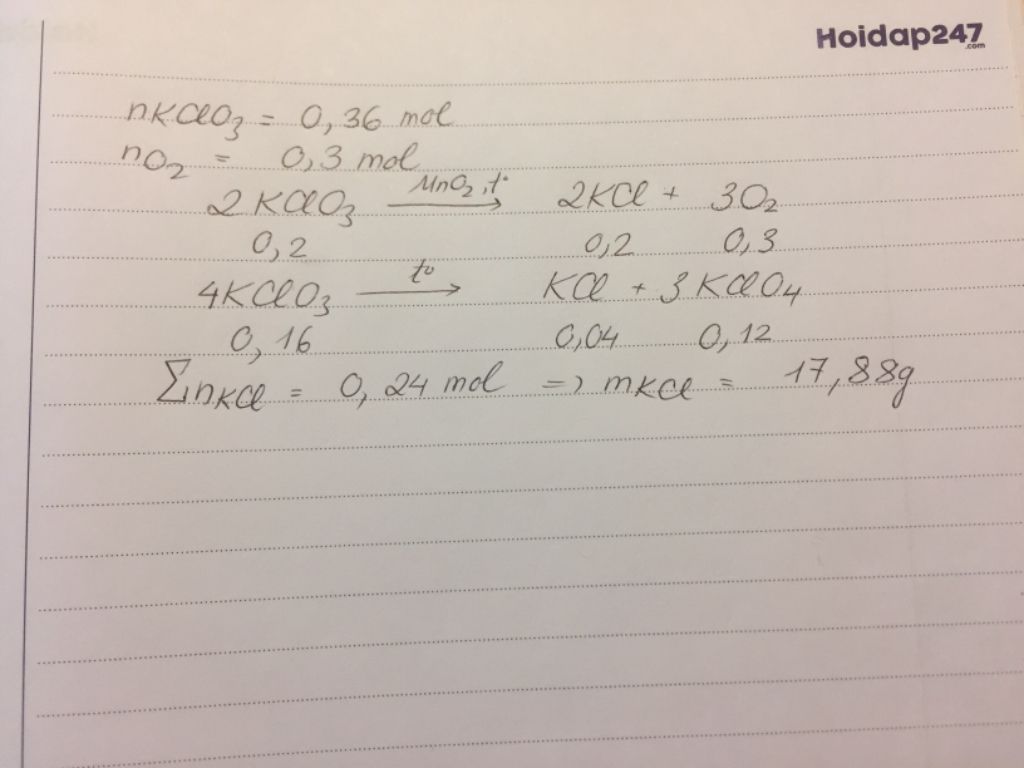 Hoidap247
.com
nKClO3 = 0,36 mol
nO2 = 0,3 mol
2KClO3 MnO2, t° → 2KCl + 3O2
0,2 0,2 0,3
4KClO3 t° → KCl + 3KClO4
0,16 0,04 0,12
∑nKCl = 0,24 mol => mKCl = 17,88g